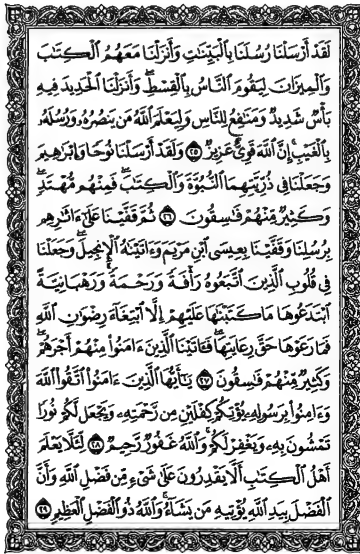 لَقَدْ أَرْسَلْنَا رُسُلَنَا بِالْبَيِّنَاتِ وَأَنزَلْنَا مَعَهُمُ الْكِتَابَ
وَالْمِيزَانَ لِيَقُومَ النَّاسُ بِالْقِسْطِ ۖ وَأَنزَلْنَا الْحَدِيدَ فِيهِ
بَأْسٌ شَدِيدٌ وَمَنَافِعُ لِلنَّاسِ وَلِيَعْلَمَ اللَّهُ مَن يَنصُرُهُ وَرُسُلَهُ
بِالْغَيْبِ ۚ إِنَّ اللَّهَ قَوِيٌّ عَزِيزٌ ٢٥ وَلَقَدْ أَرْسَلْنَا نُوحًا وَإِبْرَاهِيمَ
وَجَعَلْنَا فِي ذُرِّيَّتِهِمَا النُّبُوَّةَ وَالْكِتَابَ ۖ فَمِنْهُم مُّهْتَدٍ ۖ
وَكَثِيرٌ مِّنْهُمْ فَاسِقُونَ ٢٦ ثُمَّ قَفَّيْنَا عَلَىٰ آثَارِهِم
بِرُسُلِنَا وَقَفَّيْنَا بِعِيسَى ابْنِ مَرْيَمَ وَآتَيْنَاهُ الْإِنجِيلَ وَجَعَلْنَا
فِي قُلُوبِ الَّذِينَ اتَّبَعُوهُ رَأْفَةً وَرَحْمَةً وَرَهْبَانِيَّةً
ابْتَدَعُوهَا مَا كَتَبْنَاهَا عَلَيْهِمْ إِلَّا ابْتِغَاءَ رِضْوَانِ اللَّهِ
فَمَا رَعَوْهَا حَقَّ رِعَايَتِهَا ۖ فَآتَيْنَا الَّذِينَ آمَنُوا مِنْهُمْ أَجْرَهُمْ ۖ
وَكَثِيرٌ مِّنْهُمْ فَاسِقُونَ ٢٧ يَا أَيُّهَا الَّذِينَ آمَنُوا اتَّقُوا اللَّهَ
وَآمِنُوا بِرَسُولِهِ يُؤْتِكُمْ كِفْلَيْنِ مِن رَّحْمَتِهِ وَيَجْعَل لَّكُمْ نُورًا
تَمْشُونَ بِهِ وَيَغْفِرْ لَكُمْ ۚ وَاللَّهُ غَفُورٌ رَّحِيمٌ ٢٨ لِّئَلَّا يَعْلَمَ
أَهْلُ الْكِتَابِ أَلَّا يَقْدِرُونَ عَلَىٰ شَيْءٍ مِّن فَضْلِ اللَّهِ ۙ وَأَنَّ
الْفَضْلَ بِيَدِ اللَّهِ يُؤْتِيهِ مَن يَشَاءُ ۚ وَاللَّهُ ذُو الْفَضْلِ الْعَظِيمِ ٢٩